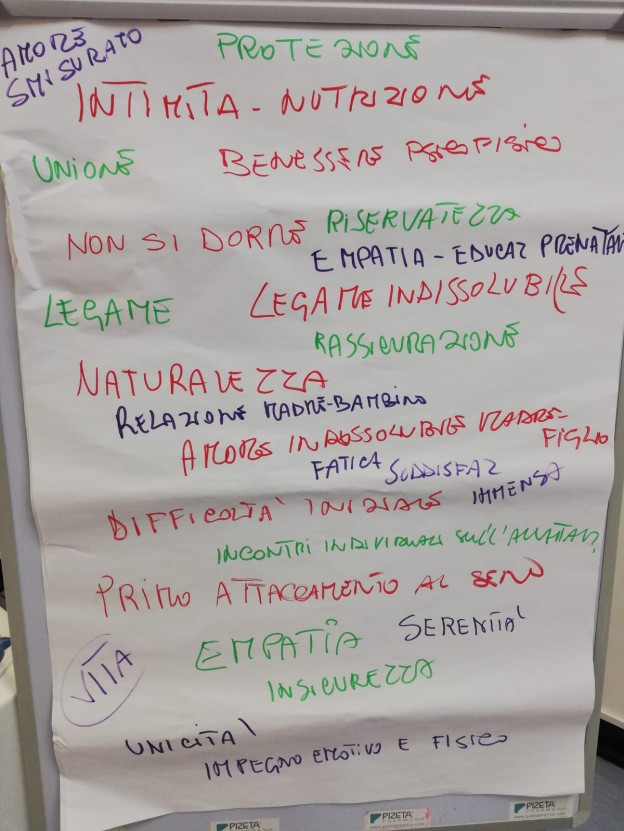 AMORE
SMISURATO
PROTEZIONE
INTIMITA - NUTRIZIONE
UNIONE
BENESSERE PSICOFISICO
NON SI DORME
RISERVATEZZA
EMPATIA - EDUCAZ PRENATAL
LEGAME
LEGAME INDISSOLUBILE
RASSICURAZIONE
NATURALEZZA
RELAZIONE MADRE-BAMBINO
AMORE INDISSOLUBILE MADRE-
FIGLIO
FATICA
SODDISFAZ
IMMENSA
DIFFICOLTA' INIZIALE
INCONTRI INDIVIDUALI SULL'ALLATTAM
PRIMO ATTACCAMENTO AL SENO
EMPATIA
SERENITA'
VITA
INSICUREZZA
UNICITA'
IMPEGNO EMOTIVO E FISICO
PIZETA
PIZETA
PIZETA